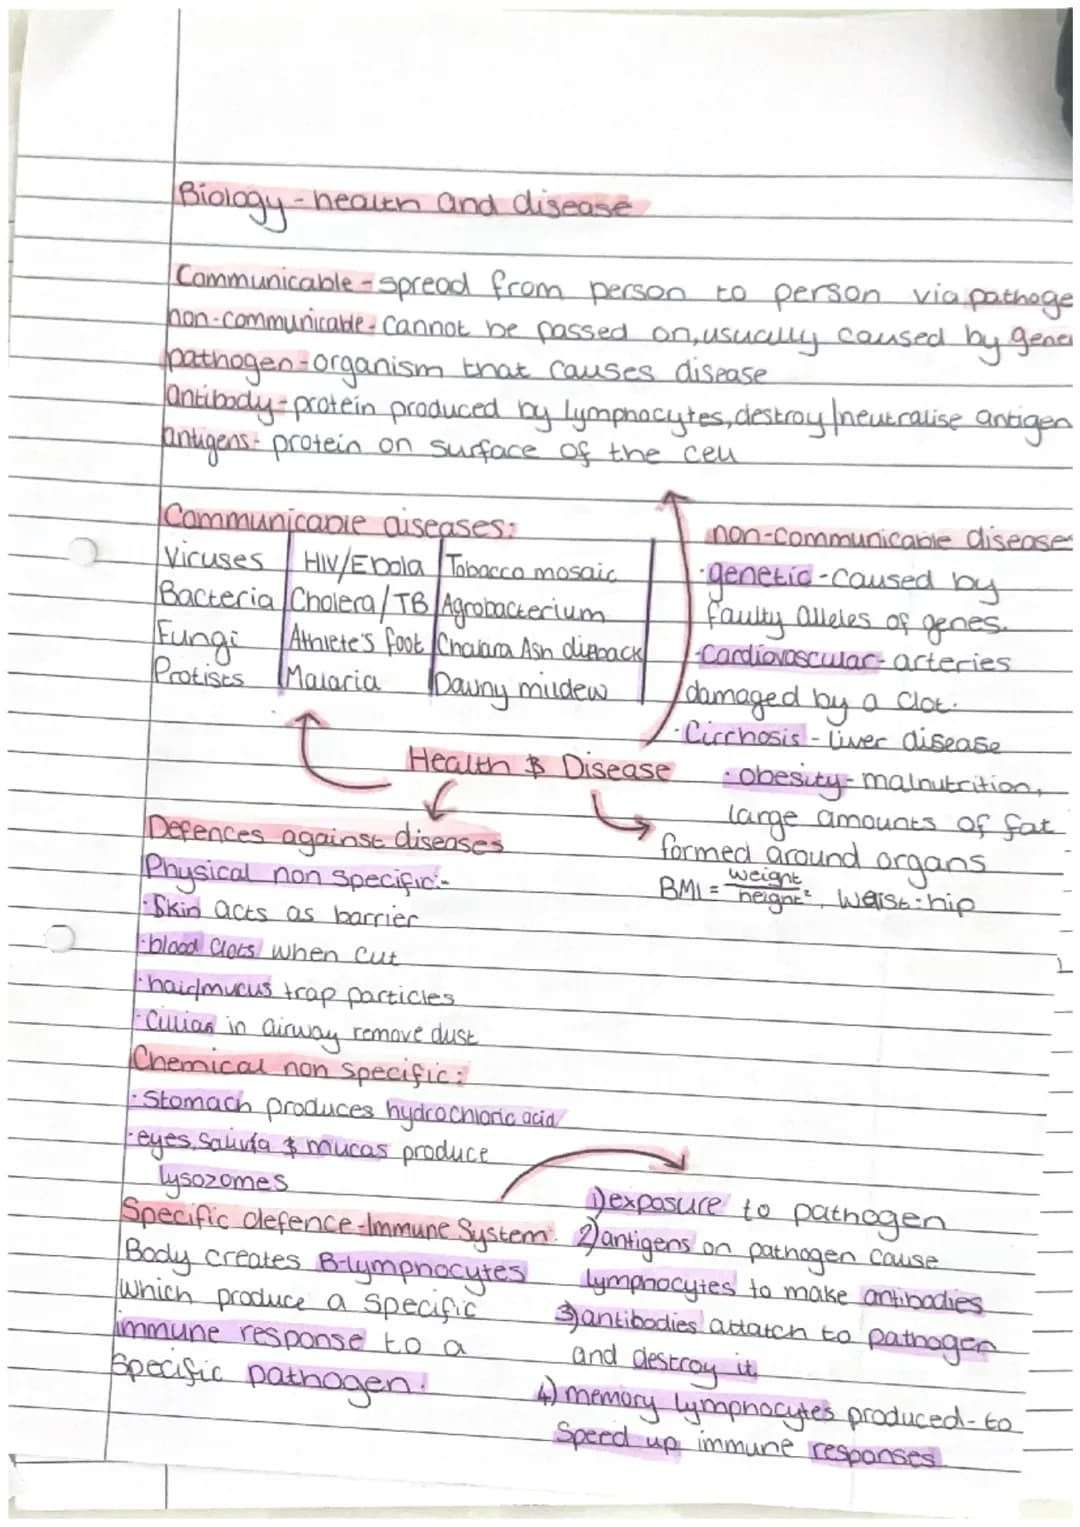 Biology - health and disease
Communicable - spread from person to person via pathoge
non-communicable - cannot be passed on, usually caused by gene
pathogen - organism that causes disease
Antibody - protein produced by lymphocytes, destroy/neutralise antigen
antigens - protein on surface of the cell
Communicable diseases:
Viruses HIV/Ebola Tobacco mosaic
Bacteria Cholera/TB Agrobacterium
Fungi Athlete's foot Chalara Ash dieback
Protists Malaria Downy mildew
non-communicable disease
·genetic - caused by
faulty alleles of genes.
·Cardiovascular - arteries
damaged by a clot.
·Cirrhosis - liver disease
·obesity - malnutrition,
large amounts of fat
formed around organs
BMI = weight / height², waist:hip
Health & Disease
Defences against diseases
Physical non specific:-
·Skin acts as barrier
·blood clots when cut
·hair/mucus trap particles
·Cillias in airway remove dust
Chemical non specific:
·Stomach produces hydrochloric acid
·eyes, saliva & mucas produce
lysozomes
Specific defence - Immune System:
Body creates B-lymphocytes
which produce a specific
immune response to a
specific pathogen.
1) exposure to pathogen
2) antigens on pathogen cause
lymphocytes to make antibodies
3) antibodies attatch to pathogen
and destroy it
4) memory lymphocytes produced - to
speed up immune responses